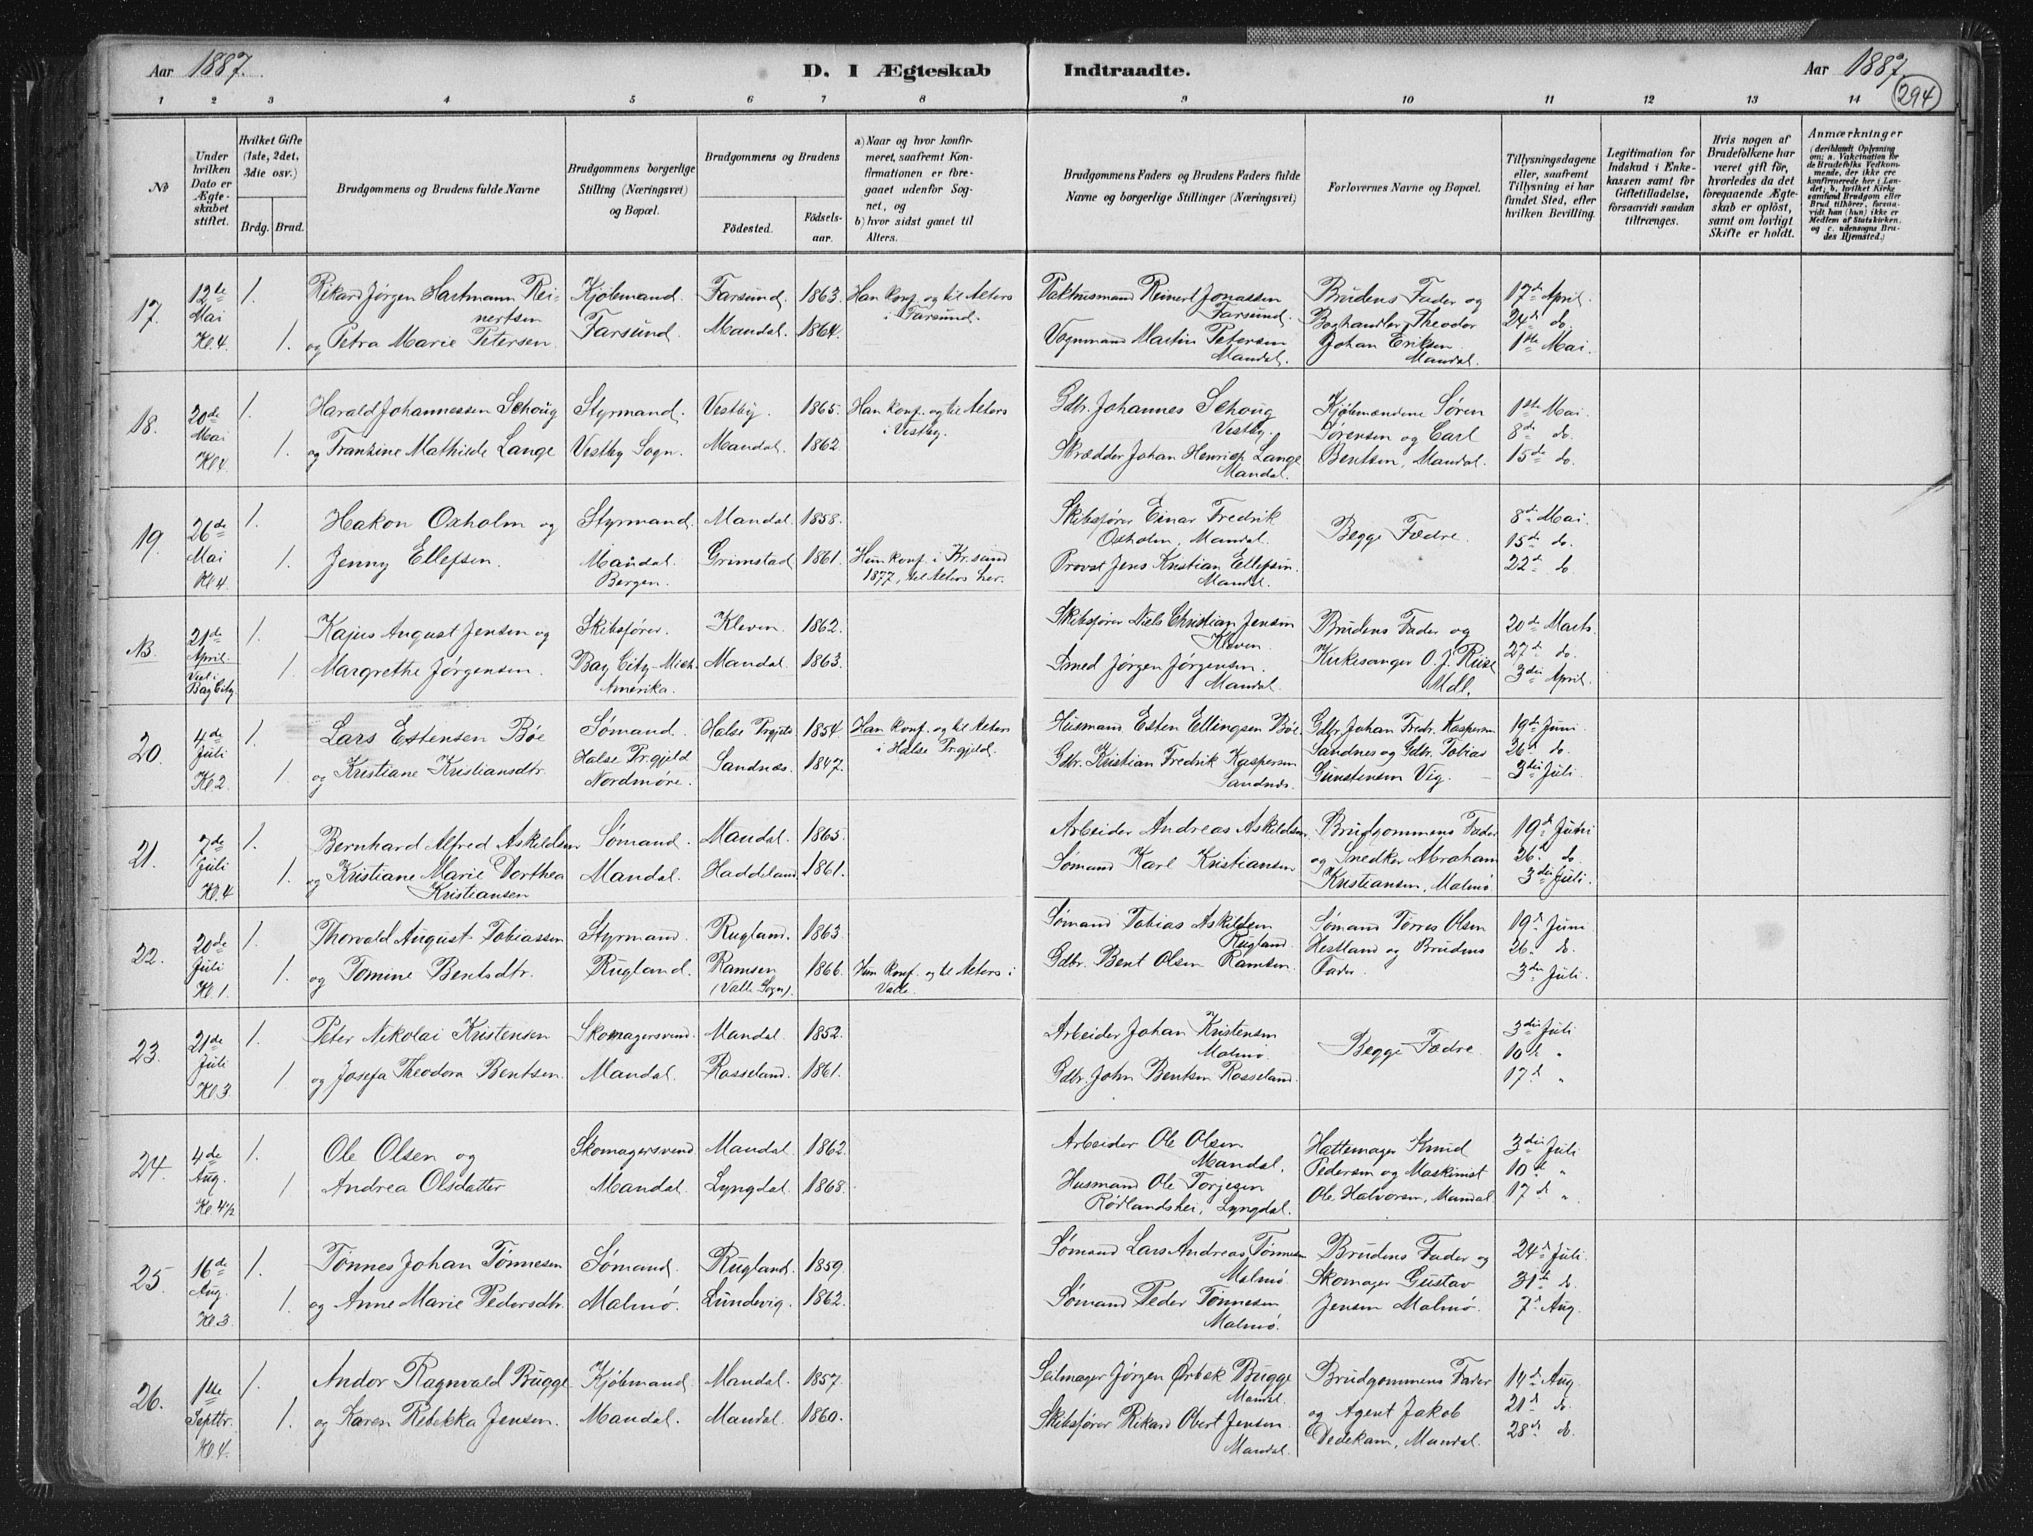 Aar 1887. D. I Ægteskab Indtraadte. Aar 1887.
294
1 2 3 4 5 6 7 8 9 10 11 12 13 14
№
Under hvilken Dato er Ægteskabet stiftet.
Hvilket Gifte (1ste, 2det, 3die osv.)
Brdg. Brud.
Brudgommens og Brudens fulde Navne
Brudgommens borgerlige Stilling (Næringsvei) og Bopæl.
Brudgommens og Brudens
Födested.
Födselsaar.
a) Naar og hvor konfirmeret, saafremt Konfirmationen er foregaaet udenfor Sognet, og
b) hvor sidst gaaet til Alters.
Brudgommens Faders og Brudens Faders fulde Navne og borgerlige Stillinger (Næringsvei)
Forlovernes Navne og Bopæl.
Tillysningsdagene eller, saafremt Tillysning ei har fundet Sted, efter hvilken Bevilling.
Legitimation for Indskud i Enkekassen samt for Giftetilladelse, forsaavidt saadan tiltrænges.
Hvis nogen af Brudefolkene har været gift før, hvorledes da det foregaaende Ægteskab er oplöst, samt om lovligt Skifte er holdt.
Anmærkninger (deriblandt Oplysning om: a. Vakcination for de Brudefolks Vedkommende, der ikke ere konfirmerede her i Landet; b, hvilket Kirkesamfund Brudgom eller Brud tilhörer, forsaavidt han (hun) ikke er Medlem af Statskirken. og c. udensogns Brudes Hjemsted.)
17. 12te Mai Kl. 4. 1. 1.
Rikard Jørgen Hartmann Reinertsen
og Petra Marie Petersen.
Kjøbmand. Farsund.
Farsund. 1863.
Mandal. 1864.
Han konf. og til Alters i Farsund.
Pakhusmand Reinert Jonassen Farsund.
Vognmand Martin Petersen Mandal.
Brudens Fader og Boghandler Theodor Johan Eriksen Mandal.
17de April.
24de do.
1ste Mai.
18. 20de Mai Kl. 4. 1. 1.
Harald Johannessen Schoug
og Frantzine Mathilde Lange
Styrmand. Vestby Sogn.
Vestby. 1865.
Mandal. 1862.
Han konf. og til Alters i Vestby.
Gdbr. Johannes Schoug Vestby.
Skrædder Johan Henrich Lange Mandal.
Kjøbmændene Sören Sørensen og Carl Bentsen, Mandal.
1ste Mai.
8de do.
15de do.
19. 26de Mai Kl. 4. 1. 1.
Hakon Oxholm og
Jenny Ellefsen.
Styrmand. Mandal. Bergen.
Mandal. 1858.
Grimstad 1861.
Hun konf. i Kr.sand 1877, til Alters her.
Skibsfører Einar Fredrik Oxholm, Mandal.
Provst Jens Kristian Ellefsen. Mandal.
Begge Fædre.
8de Mai.
15de do.
22de do
NB. 21de April. Viet i Bay City. 1. 1.
Kajus August Jensen og
Margrethe Jørgensen.
Skibsfører. Bay City - Mich. Amerika.
Kleven. 1862.
Mandal. 1863.
Skibsfører Niels Christian Jensen Kleven.
Smed Jørgen Jørgensen. Mandal.
Brudens Fader og Kirkesanger O. J. Riise Mdl.
20de Marts.
27de do.
3die April.
20. 4de Juli Kl. 2. 1. 1.
Lars Estensen Bøe
og Kristiane Kristiansdtr.
Sømand. Halse Pr.gjeld Nordmøre.
Halse Prgjeld 1854.
Sandnæs. 1847.
Han konf. og til Alters i Halse Pr.gjeld.
Husmand Esten Ellingsen Bøe.
Gdbr. Kristian Fredrik Kaspersen Sandnæs.
Gdbr. Johan Fredr. Kaspersen Sandnes og Gdbr. Tobias Gunstensen Vig.
19de Juni
26de do.
3die Juli.
21. 7de Juli Kl. 4 1. 1.
Bernhard Alfred Askildsen
og Kristiane Marie Dorthea Kristiansen
Sømand. Mandal.
Mandal. 1865.
Haddeland 1861.
Arbeider Andreas Askildsen
Sømand Karl Kristiansen
Brudgommens Fader og Snedker Abraham Kristiansen, Malmø.
19de Juni
26de do.
3die Juli.
22. 20de Juli Kl. 1. 1. 1.
Thorvald August Tobiassen
og Tomine Bentsdtr.
Styrmand. Rugland.
Rugland. 1863.
Ramsen (Valle Sogn). 1866.
Hun konf. og til Alters i Valle.
Sømand Tobias Askildsen Rugland.
Gdbr. Bent Olsen Ramsen.
Sømand Torres Olsen Hestland og Brudens Fader.
19de Juni
26de do.
3die Juli.
23. 21de Juli Kl. 3. 1. 1.
Peter Nikolai Kristensen
og Josefa Theodora Bentsen.
Skomagersvend. Mandal.
Mandal. 1852.
Rosseland. 1861.
Arbeider Johan Kristensen Malmø.
Gdbr. John Bentsen Rosseland.
Begge Fædre.
3die Juli
10de "
17de "
24. 4de Aug. Kl. 4½ 1. 1
Ole Olsen og
Andrea Olsdatter
Skomagersvend Mandal.
Mandal. 1862.
Lyngdal. 1868.
Arbeider Ole Olsen Mandal.
Husmand Ole Torjesen Rødlandshei, Lyngdal.
Hattemager Knud Pedersen og Maskinist Ole Halvorsen, Mandal.
3die Juli
10de "
17de "
25. 16de Aug. Kl. 3 1. 1.
Tønnes Johan Tønnesen
og Anne Marie Pedersdtr.
Sømand. Malmø.
Rugland. 1859.
Lundevig. 1862.
Sømand Lars Andreas Tønnesen Malmø.
Sømand Peder Tønnesen Malmø.
Brudens Fader og Skomager Gustav Jensen Malmø.
24de Juli
31te do.
7de Aug.
26. 1ste Septbr. Kl. 4. 1. 1.
Andor Ragnvald Bugge
og Karen Rebekka Jensen.
Kjøbmand. Mandal.
Mandal. 1857.
Mandal. 1860.
Seilmager Jørgen Ørbek Bugge Mandal.
Skibsfører Rikard Obert Jensen Mandal.
Brudgommens Fader og Agent Jakob Dedekam, Mandal.
14de Aug.
21de do.
28de do.